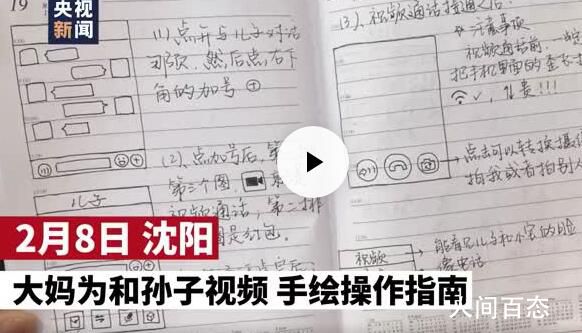 央视
新闻
19
(1)、点开与儿子对话
那页,然后点右下
角的加号⊕
(2)、点加号后,第
第三个图,
视频通话,第二排
图是红包
儿子
(3)、视频通话接通之后
注意事项
视频通话前
把手机里面的
免费!!!
点击可以转换摄像
拍我或者拍别人
视频
能看见儿子和小宝的脸
2月8日 沈阳
大妈为和孙子视频 手绘操作指南
人间百态